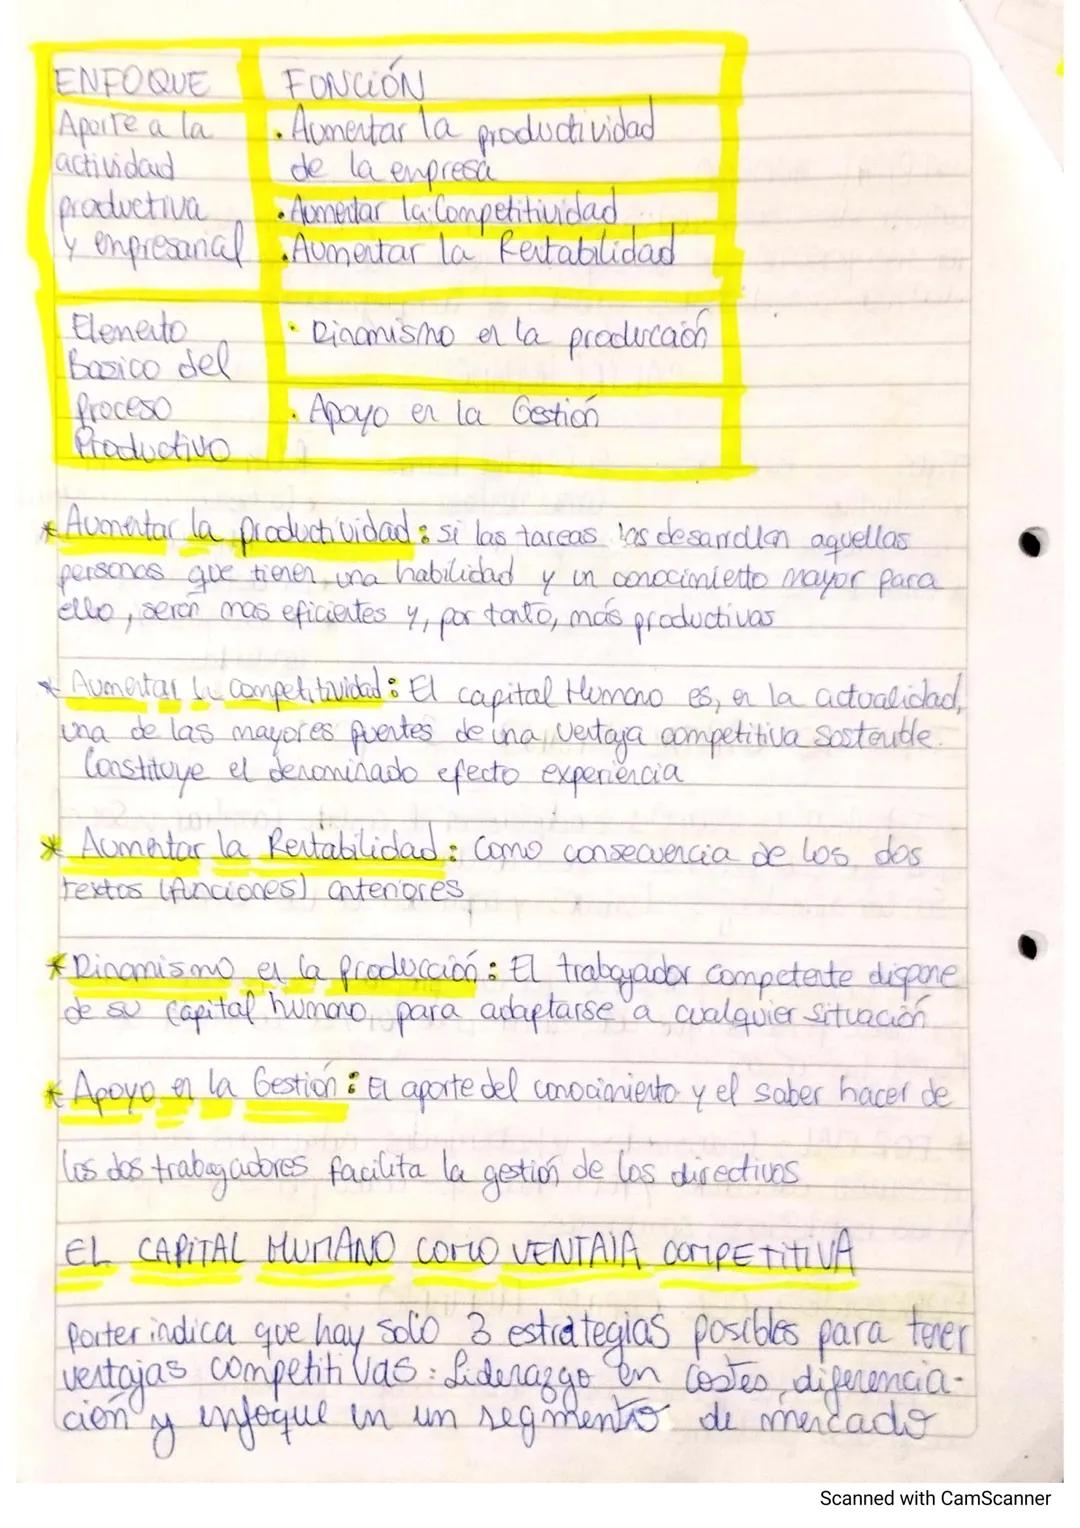 ENFOQUE FUNCIÓN
Aporte a la
actividad
productiva
y empresarial
. Aumentar la productividad
de la empresa
. Aumentar la Competitividad
. Aumentar la Rentabilidad
Elemento
Basico del
Proceso
Productivo
. Dinamismo en la producción
. Apoyo en la Gestión
* Aumentar la productividad: si las tareas las desarrollan aquellas
personas que tienen una habilidad y un conocimiento mayor para
ello, seran mas eficientes y, por tanto, más productivas
* Aumentar la competitividad: El capital Humano es, en la actualidad,
una de las mayores fuentes de una ventaja competitiva sostenible.
Constituye el denominado efecto experiencia
* Aumentar la Rentabilidad: Como consecuencia de los dos
textos (funciones) anteriores
* Dinamismo en la producción: El trabajador competente dispone
de su capital humano para adaptarse a cualquier situación
* Apoyo en la Gestión: El aporte del conocimiento y el saber hacer de
los dos trabajadores facilita la gestión de los directivos
EL CAPITAL HUMANO COMO VENTAJA COMPETITIVA
Porter indica que hay solo 3 estrategias posibles para tener
ventajas competitivas: Liderazgo en Costes, diferencia-
ción y enfoque en un segmento de mercado
Scanned with CamScanner